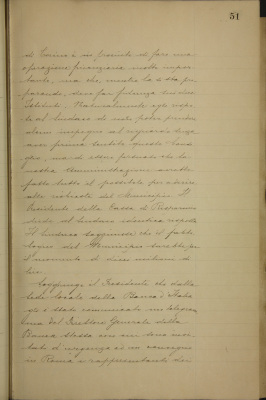 51
di Torino è in procinto di fare una
operazione finanziaria molto impor-
tante, ma che, mentre la si sta pre-
parando, deve far fidanza sui due
Istituti. Naturalmente egli rispo-
se al Sindaco di non poter prendere
alcun impegno al riguardo senza
aver prima sentito questo Consi-
glio, ma di esser persuaso che la
nostra Amministrazione avrebbe
fatto tutto il possibile per aderire
alla richiesta del Municipio. Il
Presidente della Cassa di Risparmio
diede al Sindaco identica risposta.
Il Sindaco soggiunse che il fabbi-
sogno del Municipio sarebbe per
il momento di dieci milioni di
lire.
Soggiunge il Presidente che dalla
Sede locale della Banca d'Italia
gli è stato comunicato un telegram-
ma del Direttore Generale della
Banca stessa con cui sono invi-
tati d'urgenza ad un convegno
in Roma i rappresentanti dei